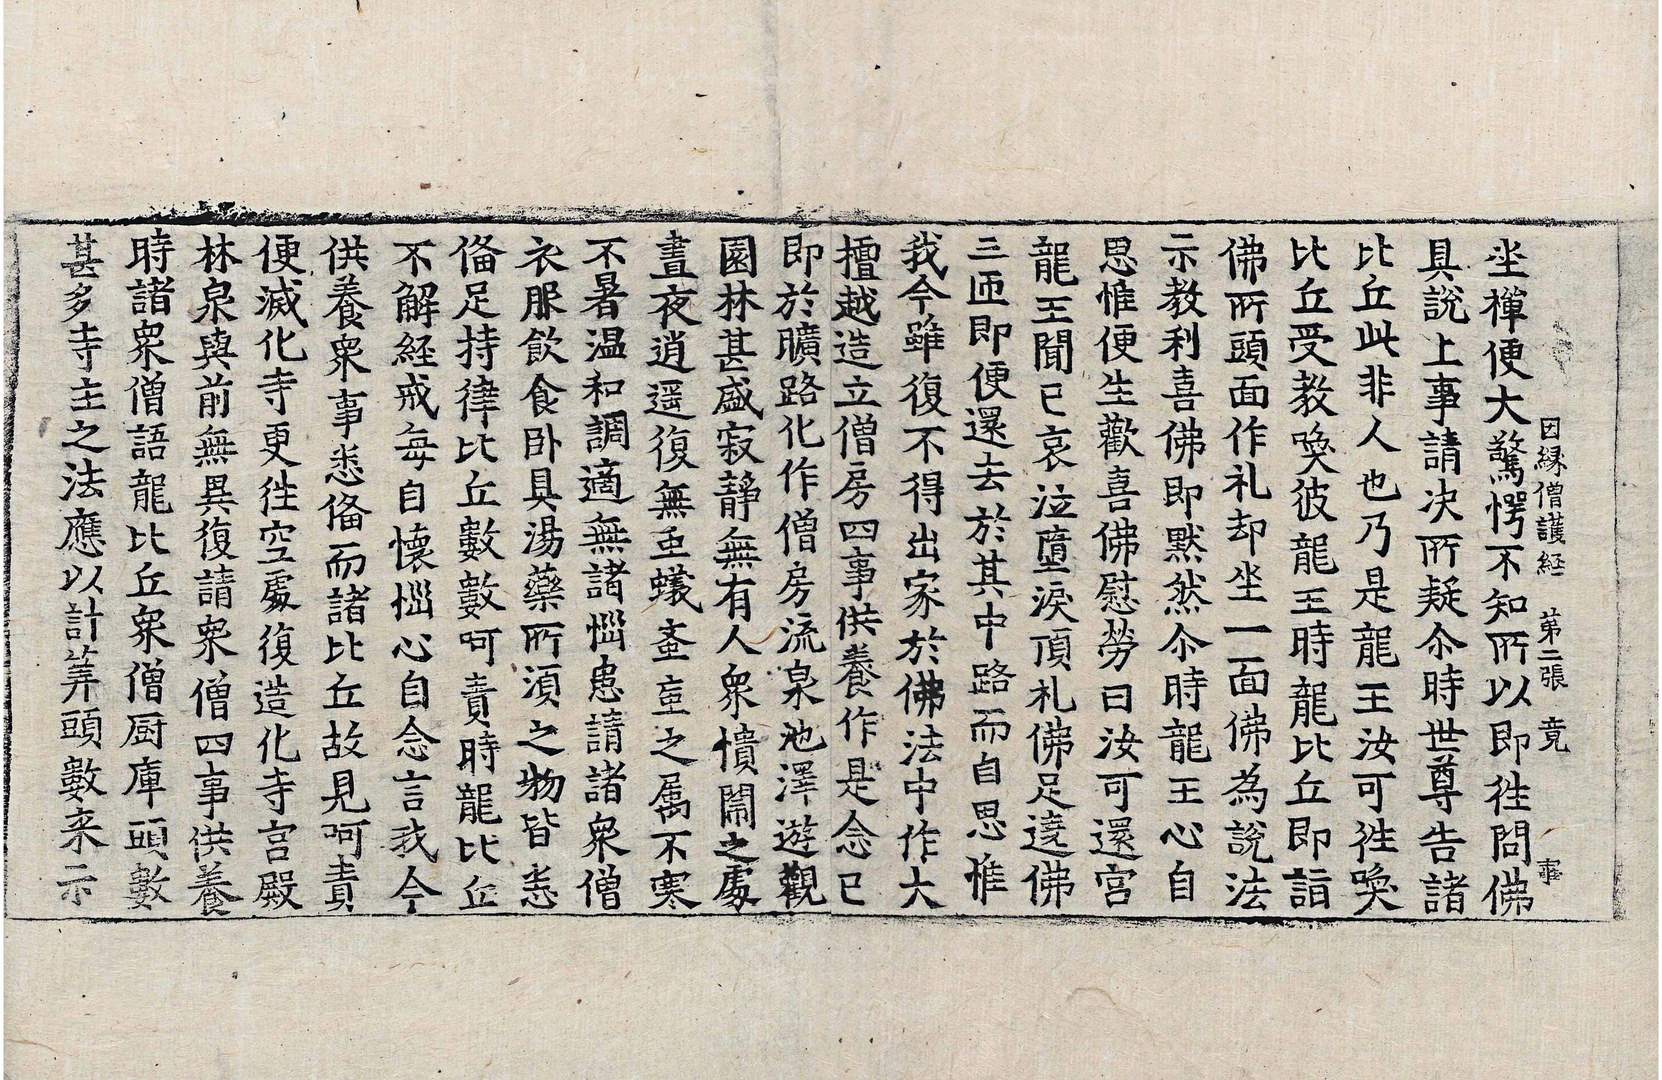 因縁僧護経 第二張 竟
坐禪便大驚愕不知所以即徃問佛
具說上事請決所疑尒時世尊告諸
比丘此非人也乃是龍王汝可徃喚
比丘受教喚彼龍王時龍比丘即詣
佛所頭面作礼却坐一面佛為說法
示教利喜佛即黙然尒時龍王心自
思惟便生歡喜佛慰勞曰汝可還宮
龍王聞已哀泣墮淚頂札佛足遶佛
三匝即便還去於其中路而自思惟
我今雖復不得出家於佛法中作大
擅越造立僧房四事供養作是念已
即於曠路化作僧房流泉池澤遊觀
園林甚盛寂靜無有人衆憒閙之處
晝夜逍遥復無䖝蟻蚤䖝之属不寒
不暑温和調適無諸惱患請諸衆僧
衣服飲食卧具湯藥所須之物皆悉
俻足持律比丘數數呵責時龍比丘
不解経戒每自懷惱心自念言我今
供養衆事悉俻而諸比丘故見呵責
便滅化寺更徃空處復造化寺宮殿
林泉與前無異復請衆僧四事供養
時諸衆僧語龍比丘衆僧厨庫頭數
甚多寺主之法應以計筭頭數来示